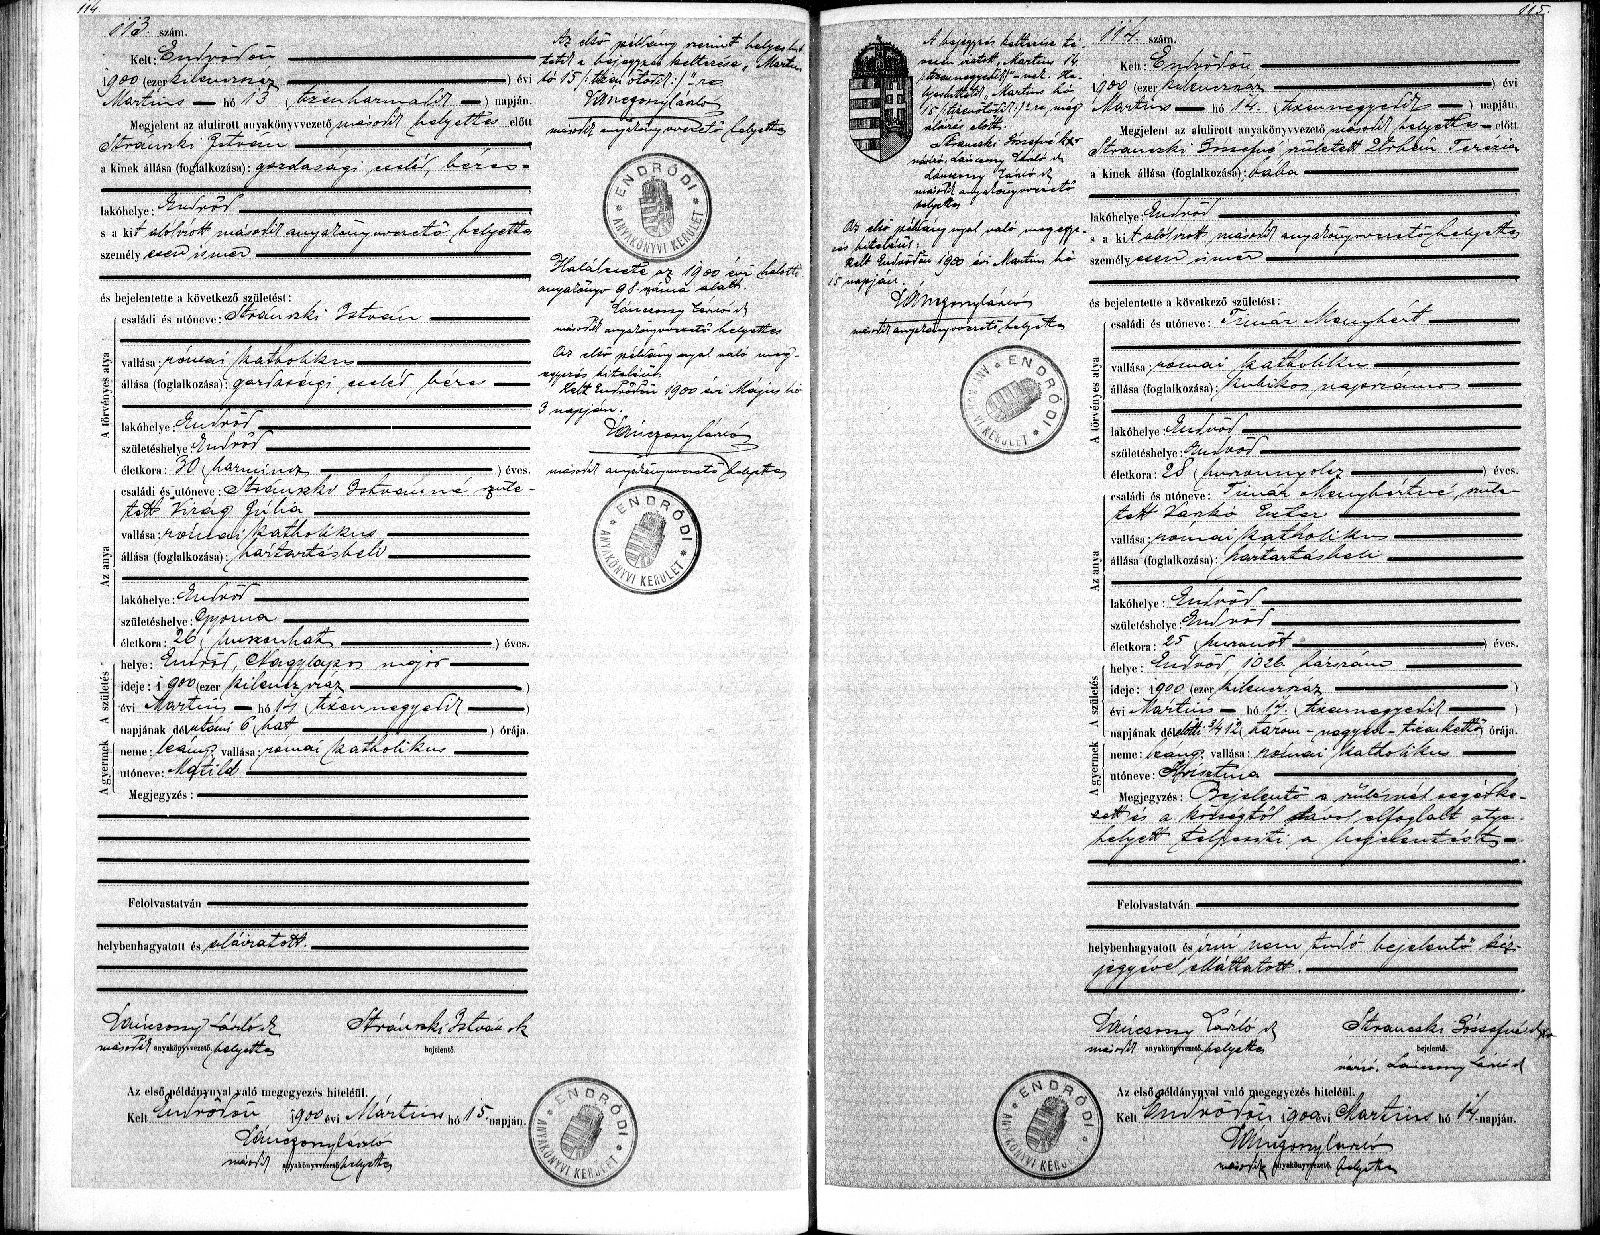 114.
113. szám.
Kelt: Endrődön
1900 (ezer kilencszáz ) évi
Martius hó 13 (tizenharmadik ) napján.
Megjelent az alulirott anyakönyvvezető második helyettes előtt
Stranszki István
a kinek állása (foglalkozása): gazdasági cseléd, béres
lakóhelye: Endrőd
s a kit alólirott második anyakönyvvezető helyettes
személyesen ismer
és bejelentette a következő születést:
A törvényes atya
családi és utóneve: Stranszki István
vallása: római katholikus
állása (foglalkozása): gazdasági cseléd, béres
lakóhelye: Endrőd
születéshelye: Endrőd
életkora: 30 (harmincz ) éves.
Az anya
családi és utóneve: Stranszki Istvánné szüle-
tett Virág Júlia
vallása: római katholikus
állása (foglalkozása): háztartásbeli
lakóhelye: Endrőd
születéshelye: Gyoma
életkora: 26 (huszonhat ) éves.
A születés
helye: Endrőd, Nagylapos major
ideje: 1900 (ezer kilencz száz )
évi Martius hó 14 (tizennegyedik )
napjának délutáni 6 (hat ) órája.
A gyermek
neme: leány, vallása: római katholikus
utóneve: Matild
Megjegyzés:
Felolvastatván
helybenhagyatott és aláiratott.
Lánczony László sk
második anyakönyvvezető helyettes
Stránszki István sk
bejelentő.
Az első példánynyal való megegyezés hiteléül.
Kelt Endrődön 1900 évi Mártius hó 15 napján.
Lánczony László
második anyakönyvvezető helyettes
ENDRŐDI
ANYAKÖNYVI KERÜLET
Az első példány szerint helyesbit-
tetik a bejegyzés kelterése, Martius
hó 15 (tizenötödik)-re
Lánczony László
második anyakönyvvezető helyettes
ENDRŐDI
ANYAKÖNYVI KERÜLET
Halálesete az 1900 évi halotti
anyakönyv 98 száma alatt.
Lánczony László sk
második anyakönyvvezető helyettes
Az első példánynyal való meg-
egyezés hiteléül.
Kelt Endrődön 1900 évi Május hó
3 napján.
Lánczony László
második anyakönyvvezető helyettes
ENDRŐDI
ANYAKÖNYVI KERÜLET
115.
A bejegyzés kelterése té-
vesen iratott, Martius 14
(tizennegyedik)-nek. He-
lyesbittetik, Martius hó
15 (tizenötödik)-re, még
aláirás előtt.
Stranszki Józsefné kéz-
Lánczony László sk
Lánczony László sk
második anyakönyvvezető
helyettes
Az első példánynyal való megegye-
zés hiteléül.
Kelt Endrődön 1900 évi Martius hó
15 napján.
Lánczony László
második anyakönyvvezető helyettes
ENDRŐDI
ANYAKÖNYVI KERÜLET
114. szám.
Kelt: Endrődön
1900 (ezer kilencszáz ) évi
Martius hó 14. (tizennegyedik ) napján.
Megjelent az alulirott anyakönyvvezető második helyettes előtt
Stranszki Józsefné született Terézia
a kinek állása (foglalkozása): bába
lakóhelye: Endrőd
s a kit alólirott, második anyakönyvvezető helyettes
személyesen ismer
és bejelentette a következő születést:
A törvényes atya
családi és utóneve: Timár Menyhért
vallása: római katholikus
állása (foglalkozása): kubikos napszámos
lakóhelye: Endrőd
születéshelye: Endrőd
életkora: 28 (huszonnyolcz ) éves.
Az anya
családi és utóneve: Timár Menyhértné, szüle-
tett Eszter
vallása: római katholikus
állása (foglalkozása): háztartásbeli
lakóhelye: Endrőd
születéshelye: Endrőd
életkora: 25 (huszonöt ) éves.
A születés
helye: Endrőd 1026 házszám
ideje: 1900 (ezer kilenczszáz )
évi Martius hó 14. (tizennegyedik )
napjának délelőtti 3/4 12 (három-negyed-tizenkettő) órája.
A gyermek
neme: leány, vallása: római katholikus
utóneve: Krisztina
Megjegyzés: Bejelentő a szülésnél segédke-
zett és a községtől távol elfoglalt atya
helyett teljesiti a bejelentést
Felolvastatván
helybenhagyatott és irni nem tudó bejelentő kéz-
jegyével elláttatott.
Lánczony László sk
második anyakönyvvezető helyettes
Stranszki Józsefné
bejelentő.
Lánczony László sk
Az első példánynyal való megegyezés hiteléül.
Kelt Endrődön 1900 évi Martius hó 14 napján.
Lánczony László
második anyakönyvvezető helyettes
ENDRŐDI
ANYAKÖNYVI KERÜLET